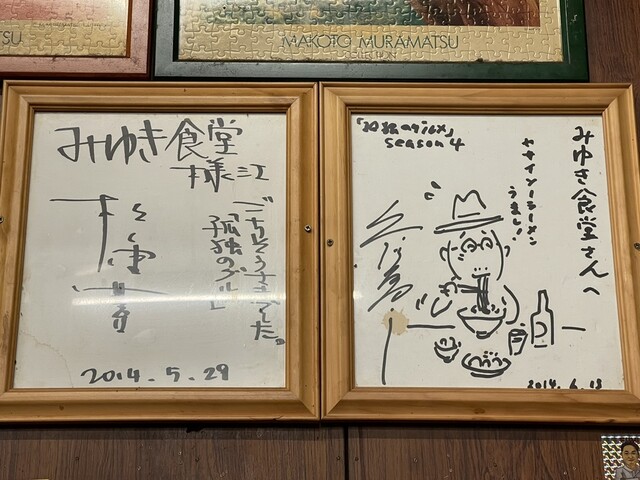 TSU
MAKOTO MURAMATSU
COLLECTION
みゆき食堂
様江
ごちそうさまでした。
「孤独のグルメ」
2014.5.29
「孤独のグルメ」
season 4
みゆき食堂さんへ
ヤサイソーラーメン
うまし!
久住昌
2014.6.18